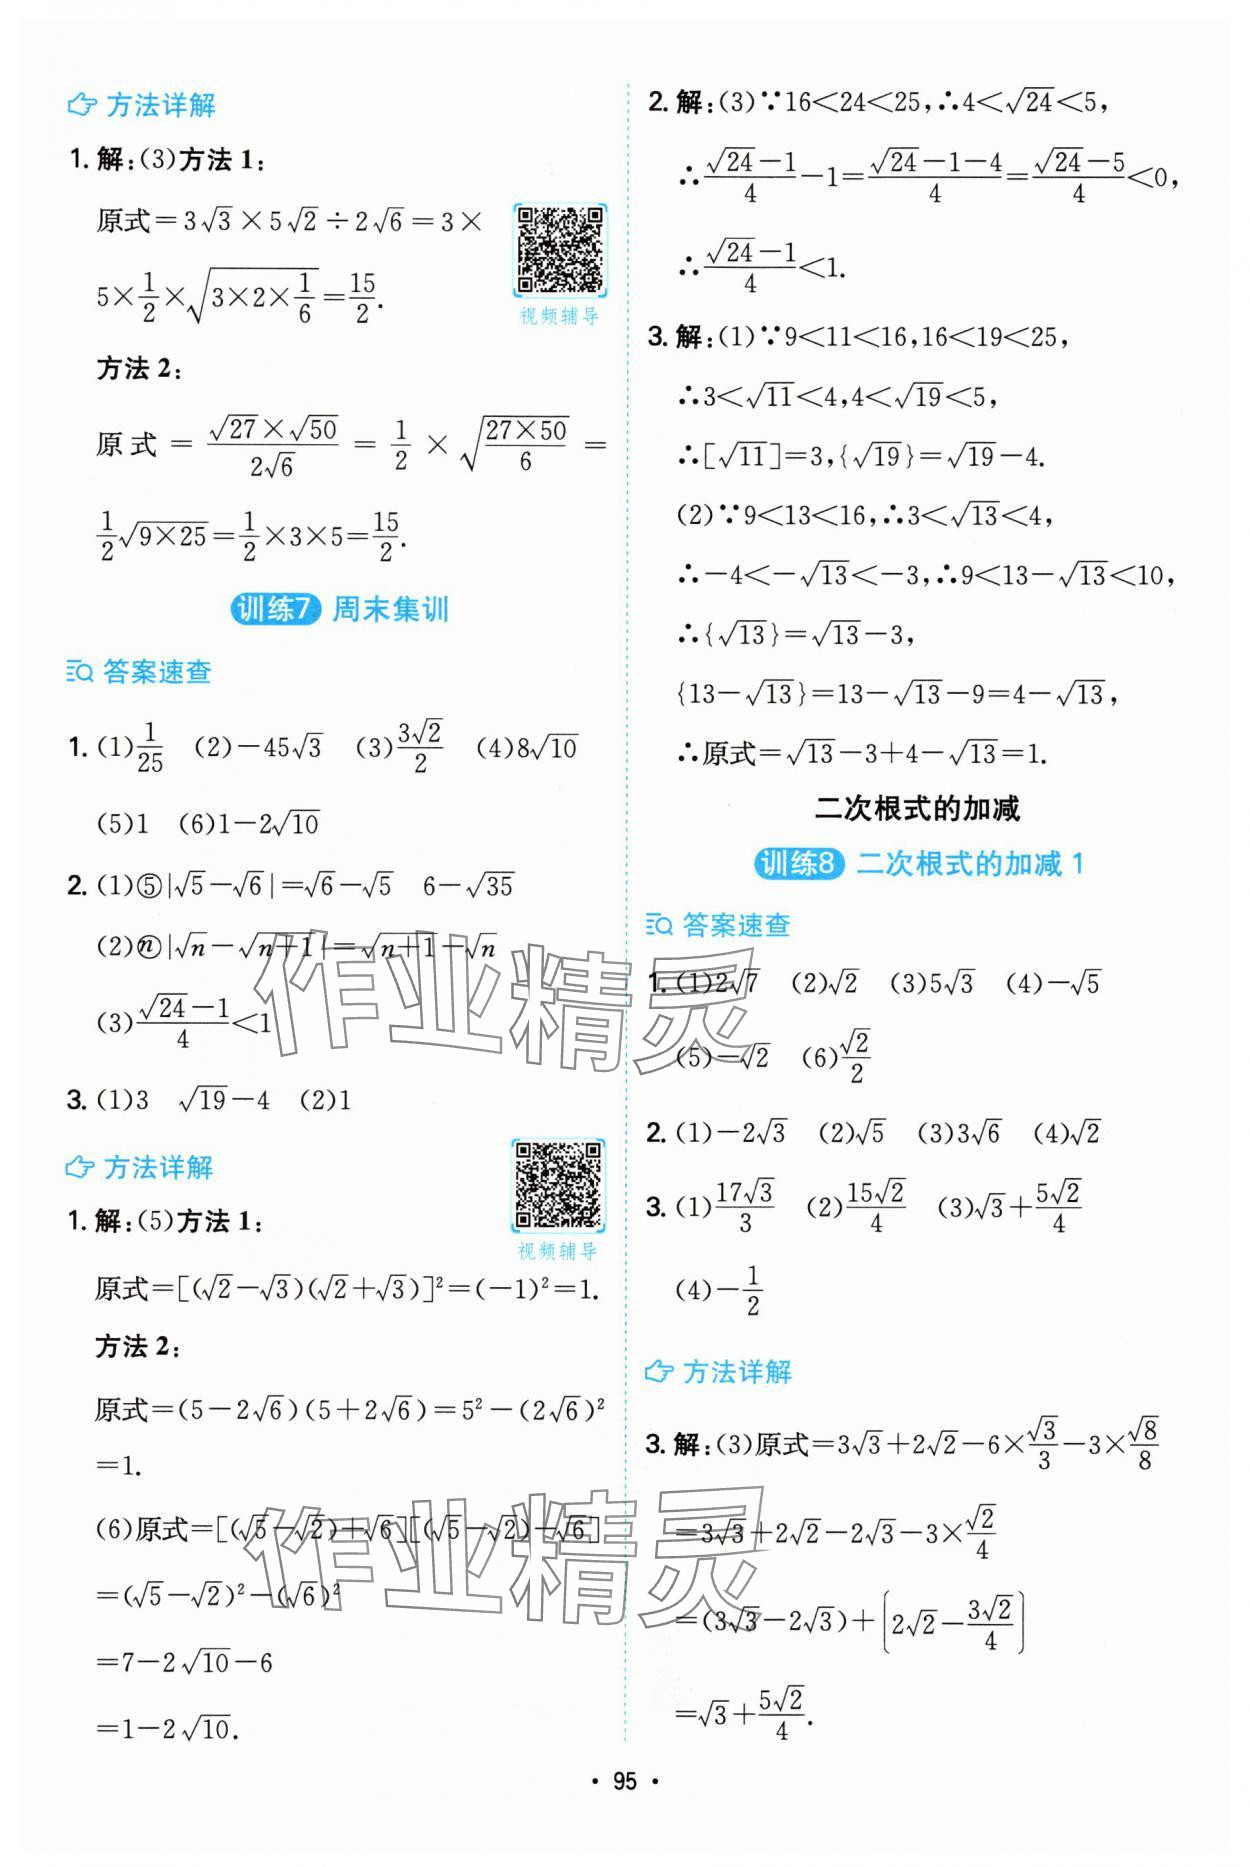 方法详解
1. 解:(3)方法 1:
原式=3√3×5√2÷2√6=3×
5×1/2×√(3×2×1/6)=15/2.
视频辅导
方法 2:
原式=(√27×√50)/(2√6)=1/2×√((27×50)/6)=
1/2√(9×25)=1/2×3×5=15/2.
训练7 周末集训
答案速查
1. (1)1/25 (2)-45√3 (3)3√2/2 (4)8√10
(5)1 (6)1-2√10
2. (1)⑤|√5-√6|=√6-√5 6-√35
(2)ⓝ|√n-√(n+1)|=√(n+1)-√n
(3)(√24-1)/4<1
3. (1)3 √19-4 (2)1
方法详解
1. 解:(5)方法 1:
视频辅导
原式=[(√2-√3)(√2+√3)]²=(-1)²=1.
方法 2:
原式=(5-2√6)(5+2√6)=5²-(2√6)²
=1.
(6)原式=[(√5-√2)+√6][(√5-√2)-√6]
=(√5-√2)²-(√6)²
=7-2√10-6
=1-2√10.
2. 解:(3)∵16<24<25,∴4<√24<5,
∴(√24-1)/4-1=(√24-1-4)/4=(√24-5)/4<0,
∴(√24-1)/4<1.
3. 解:(1)∵9<11<16,16<19<25,
∴3<√11<4,4<√19<5,
∴[√11]=3,{√19}=√19-4.
(2)∵9<13<16,∴3<√13<4,
∴-4<-√13<-3,∴9<13-√13<10,
∴{√13}=√13-3,
{13-√13}=13-√13-9=4-√13,
∴原式=√13-3+4-√13=1.
二次根式的加减
训练8 二次根式的加减 1
答案速查
1. (1)2√7 (2)√2 (3)5√3 (4)-√5
(5)-√2 (6)√2/2
2. (1)-2√3 (2)√5 (3)3√6 (4)√2
3. (1)17√3/3 (2)15√2/4 (3)√3+5√2/4
(4)-1/2
方法详解
3. 解:(3)原式=3√3+2√2-6×√3/3-3×√8/8
=3√3+2√2-2√3-3×√2/4
=(3√3-2√3)+(2√2-3√2/4)
=√3+5√2/4.
作业精灵
作业精灵
• 95 •